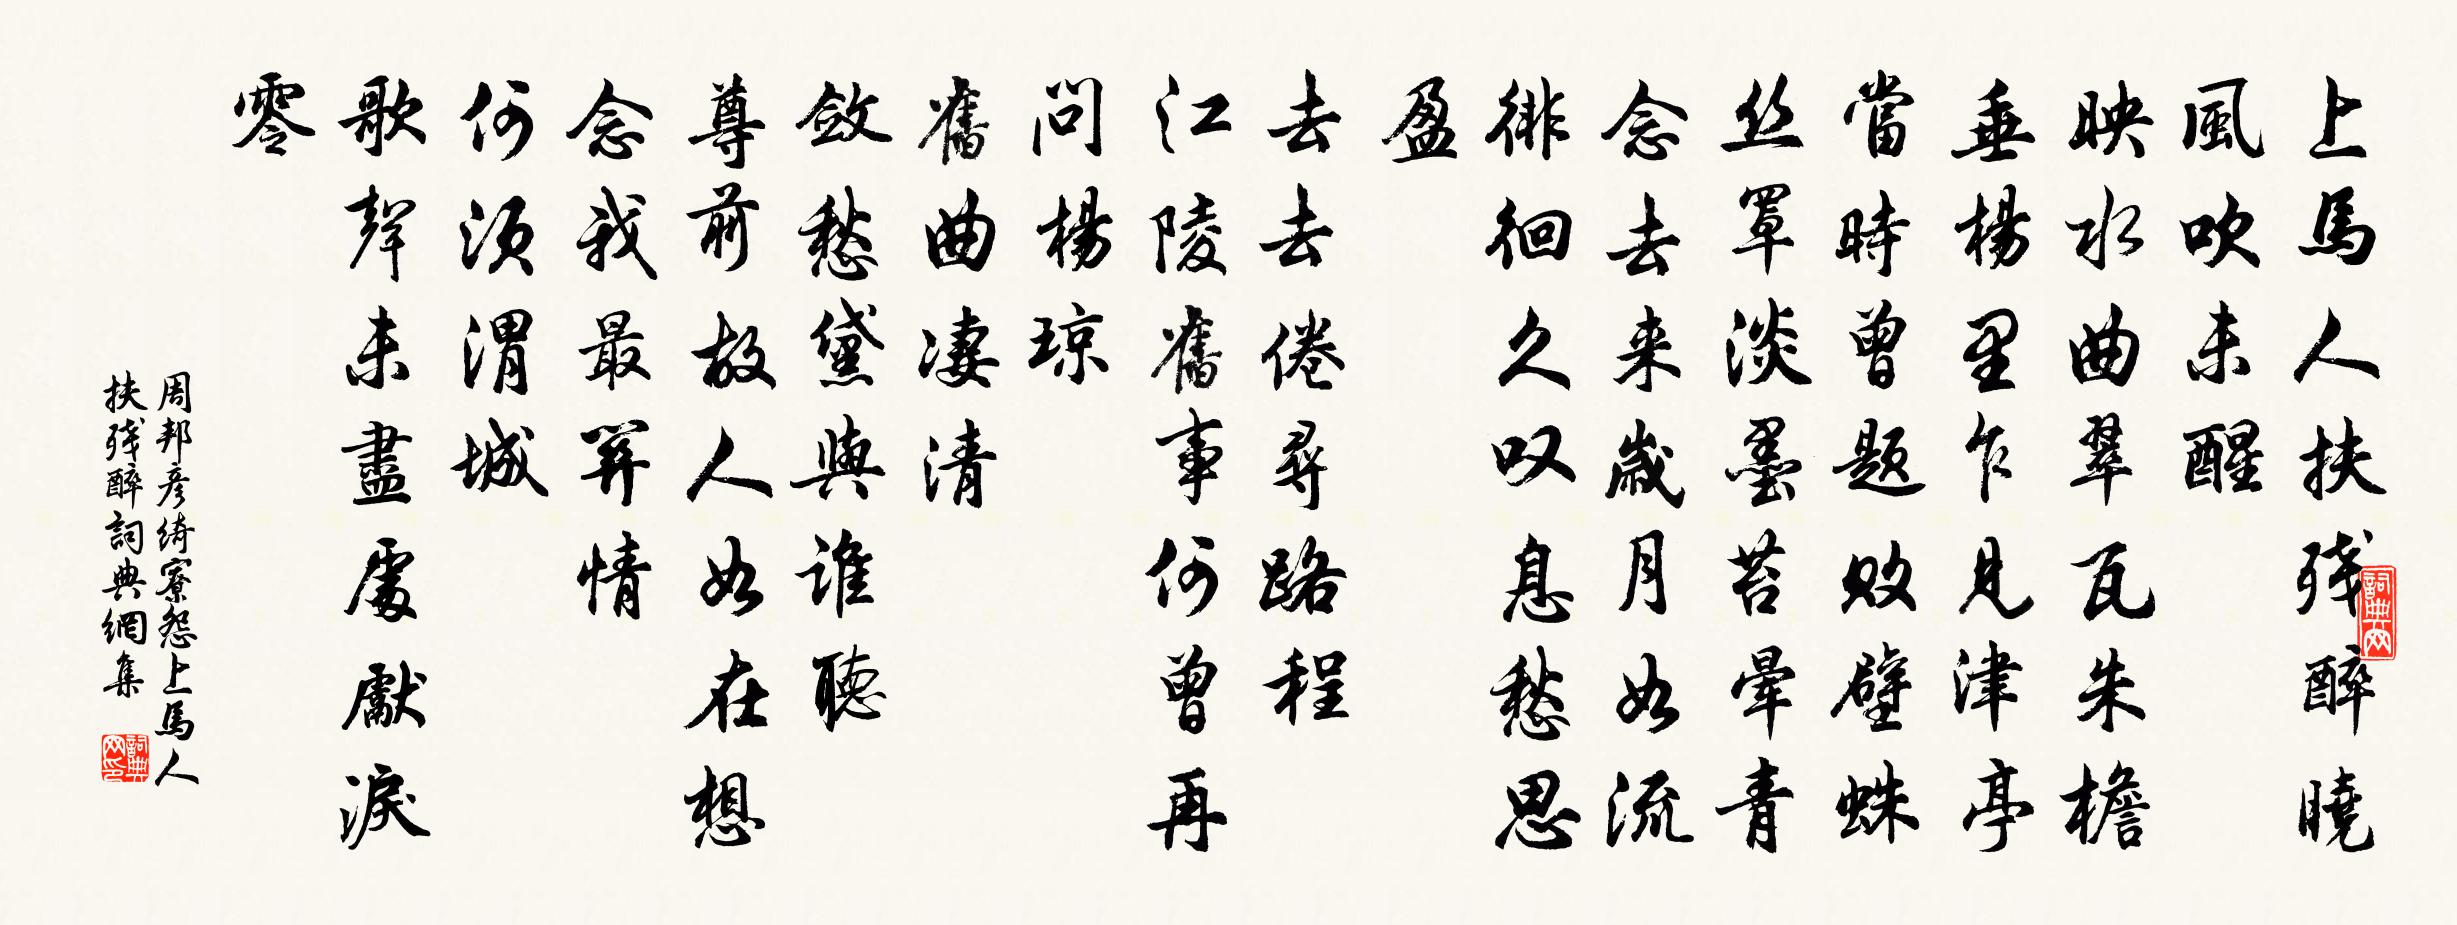 上馬人扶残醉曉
風吹未醒
映水曲翠瓦朱檐
垂楊里乍見津亭
當時曾題败壁蛛
丝罩淡墨苔暈青
念去来歲月如流
徘徊久叹息愁思
盈
去去倦尋路程
江陵舊事何曾再
問楊琼
舊曲凄清
斂愁黛與誰聽
尊前故人如在想
念我最關情
何须渭城
歌聲未盡處獻淚
零
周邦彦绮寮怨上馬人
扶残醉詞典網集
詞典网
詞典网印